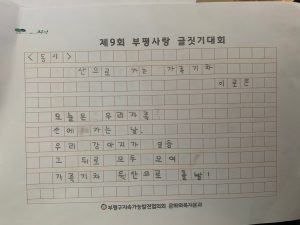 제9회 부평사랑 글짓기대회
<동시>
산으로 가는 가족기차
오늘은 우리가족
산에 가는 날.
우리 강아지가 열차
그 뒤로 모두 모여
가족기차 뒷산으로 출발!
부평구지속가능발전협의회 문화와복지분과